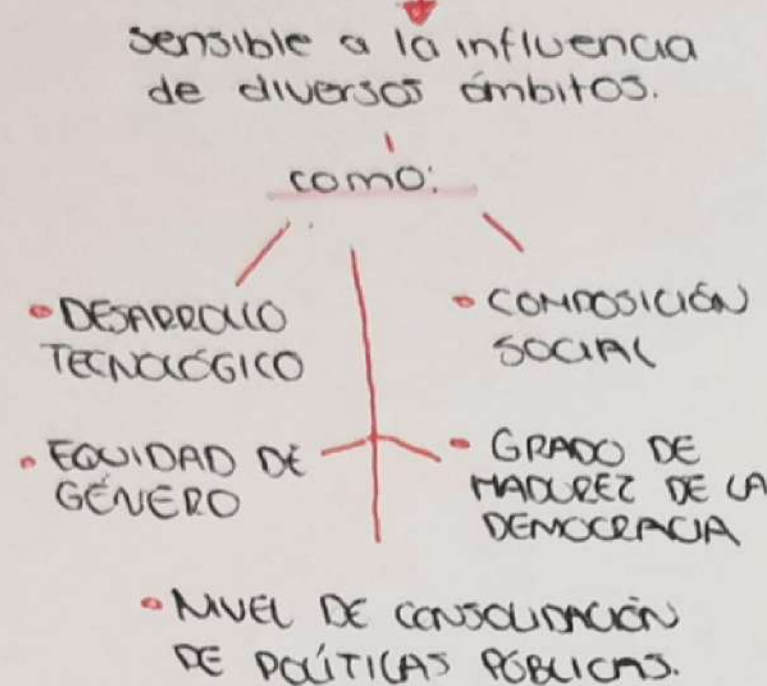 sensible a la influencia
de diversos ámbitos.
como:
• DESARROLLO
TECNOLÓGICO
• COMPOSICIÓN
SOCIAL
• EQUIDAD DE
GÉNERO
• GRADO DE
MADUREZ DE LA
DEMOCRACIA
• NIVEL DE CONSOLIDACIÓN
DE POLÍTICAS PÚBLICAS.